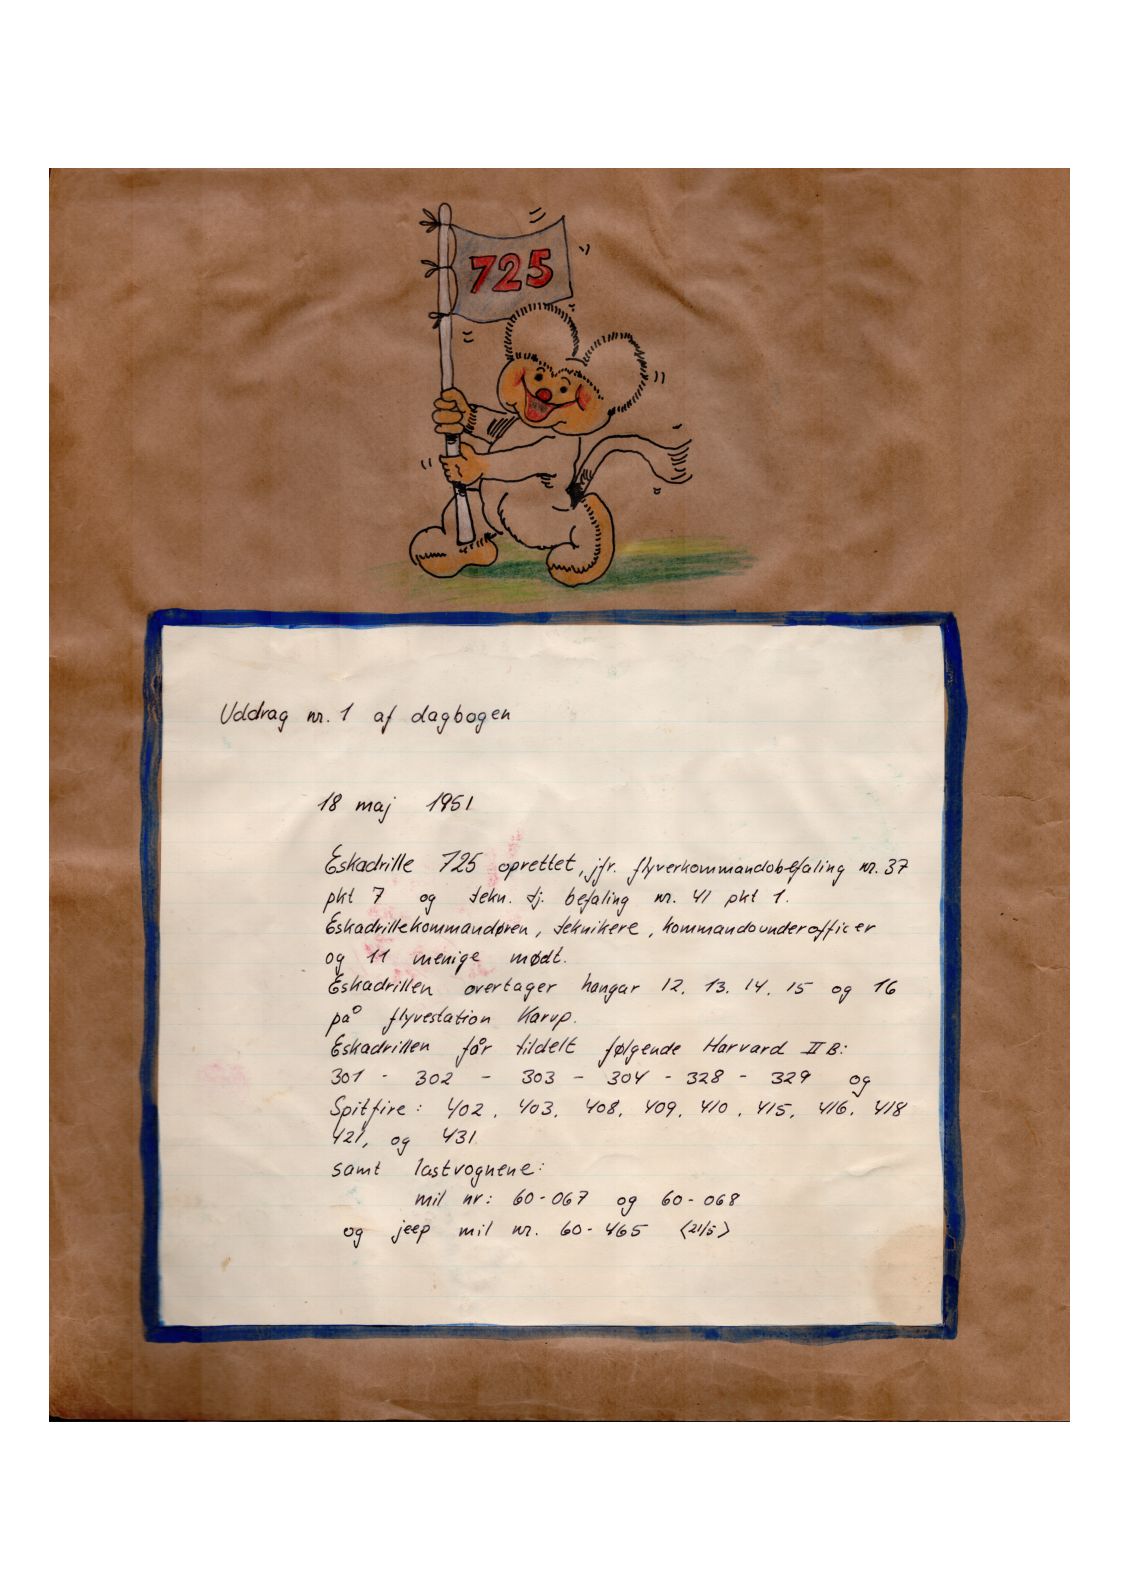 725
Uddrag nr. 1 af dagbogen
18 maj 1951
Eskadrille 725 oprettet, jfr. flyverkommandobefaling nr. 37
pkt 7 og tekn. tj. befaling nr. 41 pkt 1.
Eskadrillekommandøren, teknikere, kommandounderofficer
og 11 menige mødt.
Eskadrillen overtager hangar 12, 13, 14, 15 og 16
på flyvestation Karup.
Eskadrillen får tildelt følgende Harvard II B:
301 - 302 - 303 - 304 - 328 - 329 og
Spitfire: 402, 403, 408, 409, 410, 415, 416, 418
421, og 431
samt lastvognene:
mil nr: 60-067 og 60-068
og jeep mil nr. 60-465 (21/5)